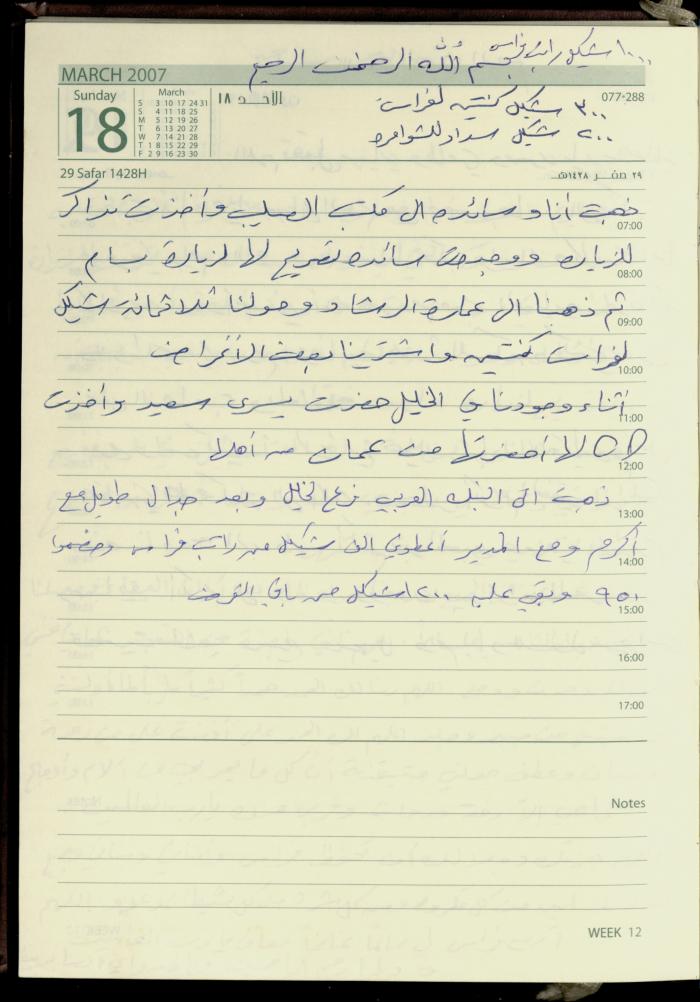 ١٠٠٠ شيكل راتب فراس
بسم الله الرحمن الرحيم
MARCH 2007
Sunday
18
March
S 3 10 17 24 31
S 4 11 18 25
M 5 12 19 26
T 6 13 20 27
W 7 14 21 28
T 1 8 15 22 29
F 2 9 16 23 30
الأحــد ١٨
077-288
٣٠٠ شيكل كنتين لفراس
٢٠٠ شيكل سداد للشوامره
29 Safar 1428H
٢٩ صفـر ١٤٢٨هـ
ذهبت أنا وسائده الى مكتب الصليب وأخذت تذاكر
07:00
للزياره ووجدت سائده تصريح لها لزيارة بسام
08:00
ثم ذهبنا الى عمارة الرشاد وحولنا ثلاثمائة شيكل
09:00
لفراس كنتين واشترينا بعض الأغراض
10:00
أثناء وجودنا في الخليل حضرت يسرى سعيد وأخذت
11:00
CD لها أحضرتها من عمان من أهلها
12:00
ذهبت الى البنك العربي فرع الخليل وبعد جدال طويل مع
13:00
أكرم ومع المدير أعطوني الف شيكل من راتب فراس وخصموا
14:00
٩٥٠ وبقي عليه ١٢٠٠ شيكل من باقي القرض
15:00
16:00
17:00
Notes
WEEK 12